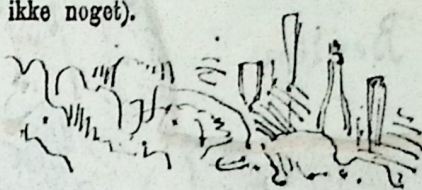 ikke noget).